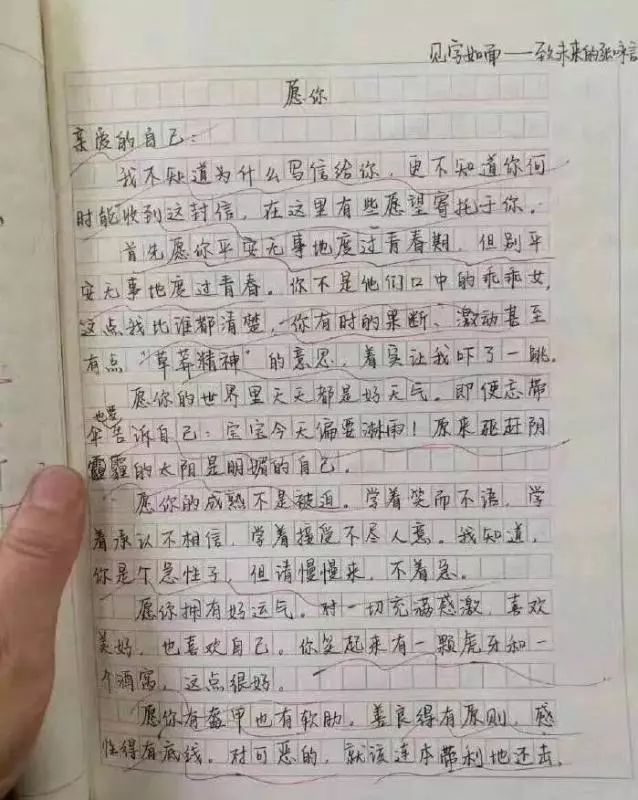 见字如面——致未来的张咏言
愿你
亲爱的自己：
我不知道为什么写信给你，更不知道你何
时能收到这封信，在这里有些愿望寄托于你。
首先愿你平安无事地度过青春期，但别平
安无事地度过青春。你不是他们口中的乖乖女，
这点我比谁都清楚，你有时的果断、激动甚至
有点“草莽精神”的意思，着实让我吓了一跳。
愿你的世界里天天都是好天气。即便忘带
伞也要告诉自己：宝宝今天偏要淋雨！原来驱赶阴
霾的太阳是明媚的自己。
愿你的成熟不是被迫。学着笑而不语，学
着承认不相信，学着接受不尽人意。我知道，
你是个急性子，但请慢慢来，不着急。
愿你拥有好运气。对一切充满感激，喜欢
美好，也喜欢自己。你笑起来有一颗虎牙和一
个酒窝，这点很好。
愿你有盔甲也有软肋。善良得有原则，感
性得有底线。对可恶的，就该连本带利地还击。